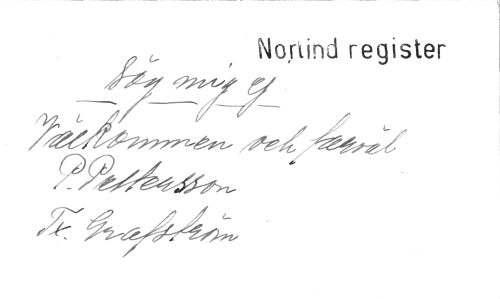 Norlind register
Säg mig ej
Välkommen och farväl
P. Pettersson
Tx. Grafström